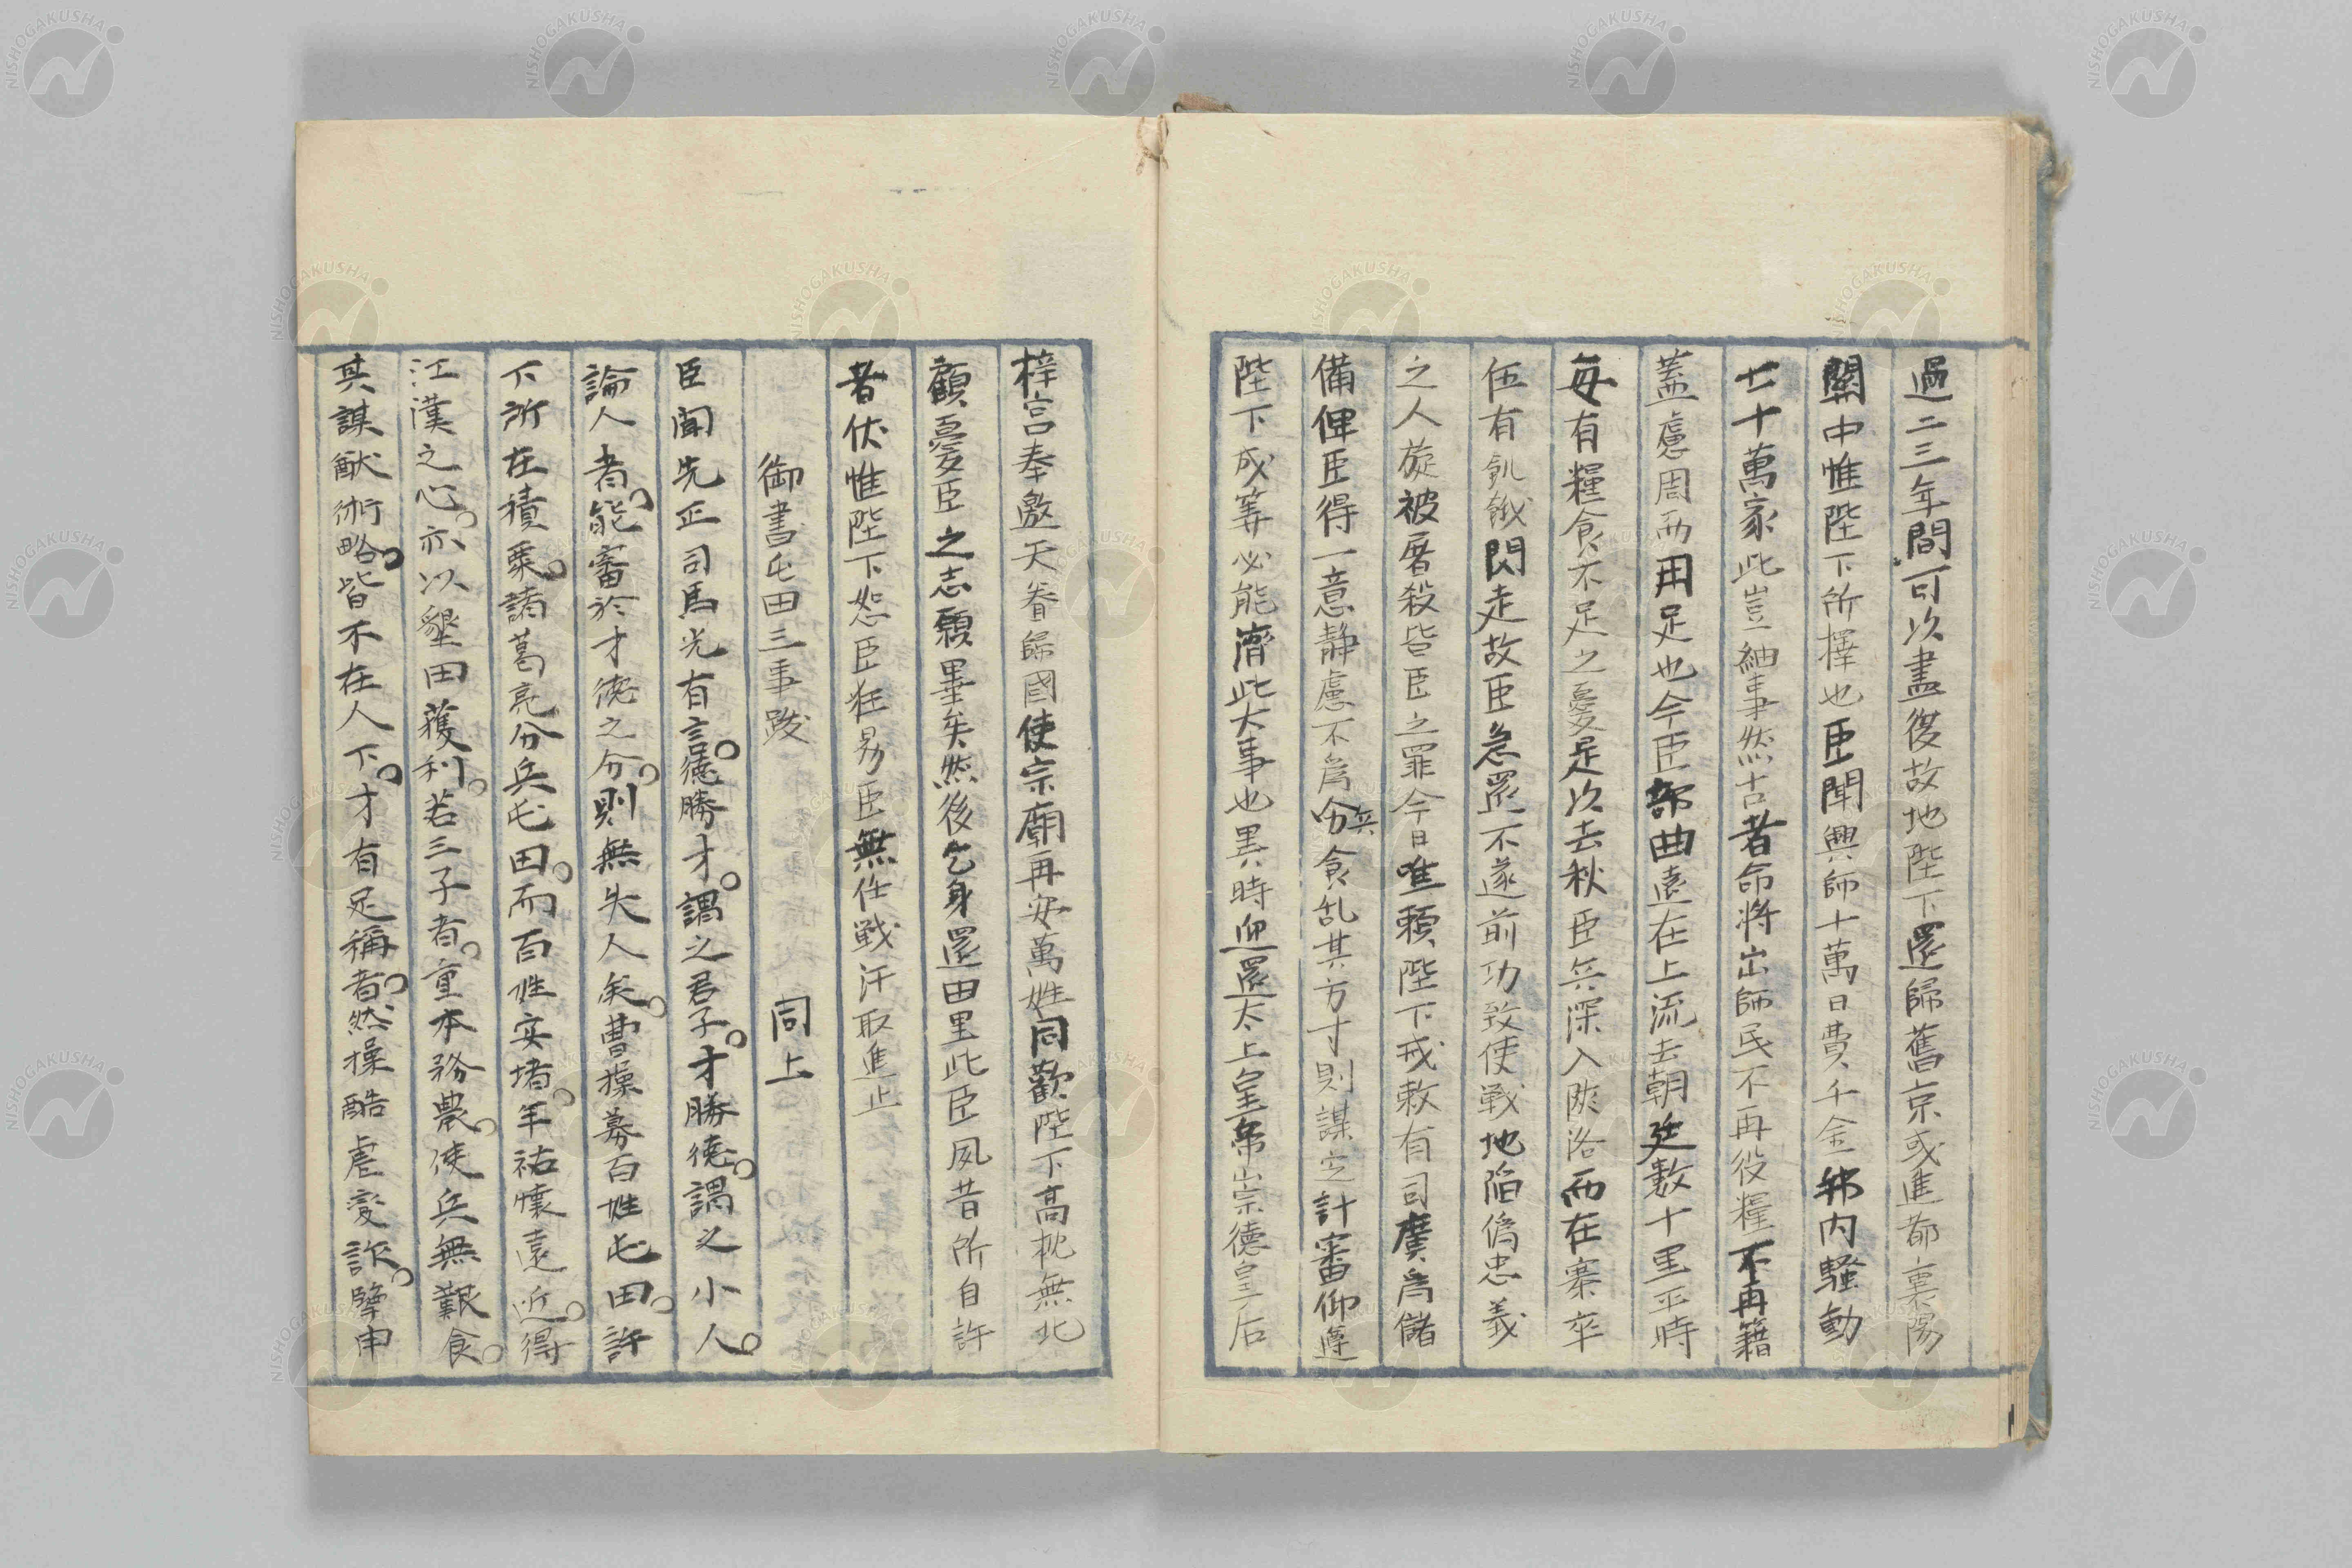 過二三年間可以盡復故地陛下還歸舊京或進都襄陽
關中惟陛下所擇也臣聞興師十萬日費千金邦内騷動
七十萬家此豈細事然古者命將出師民不再役糧不再籍
蓋慮周而用足也今臣部曲遠在上流去朝廷數十里平時
每有糧食不足之憂是以去秋臣兵深入陝洛而在寨卒
伍有飢餓閃走故臣急還不遂前功致使戦地陷僞忠義
之人旋被屠殺皆臣之罪今日唯頼陛下戒敕有司廣爲儲
備俾臣得一意静慮不爲兵食乱其方寸則謀定計審仰遵
陛下成筭必能濟此大事也異時迎還太上皇帝崇德皇后
梓宮奉邀天眷歸國使宗廟再安萬姓同歡陛下高枕無北
顧憂臣之志願畢矣然後乞身還田里此臣夙昔所自許
者伏惟陛下恕臣狂易臣無任戦汗取進止
御書屯田三事跋 同上
臣聞先正司馬光有言。德勝才。謂之君子。才勝德。謂之小人。
論人者。能審於才德之分。則無失人矣。曹操募百姓屯田。許
下所在積粟。諸葛亮分兵屯田。而百姓安堵。羊祜懷遠近。得
江漢之心。亦以墾田獲利。若三子者。重本務農。使兵無艱食。
其謀猷術略。皆不在人下。才有足稱者。然操酷虐変詐。孽申
NISHOGAKUSHA